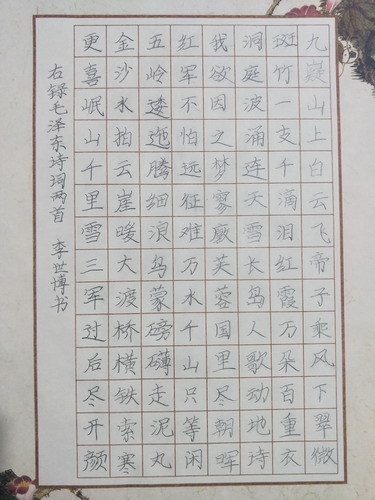 九嶷山上白云飞帝子乘风下翠微
斑竹一支千滴泪红霞万朵百重衣
洞庭波涌连天雪长岛人歌动地诗
我欲因之梦寥廓芙蓉国里尽朝晖
红军不怕远征难万水千山只等闲
五岭逶迤腾细浪乌蒙磅礴走泥丸
金沙水拍云崖暖大渡桥横铁索寒
更喜岷山千里雪三军过后尽开颜
右録毛泽东诗词两首 李世博书